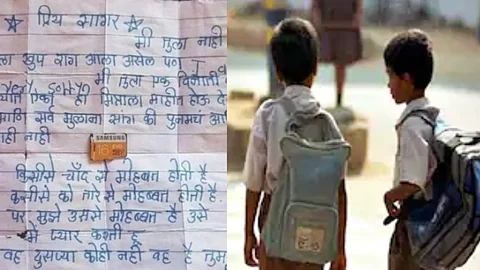 प्रिय सागर
मी तुला नाही
ला खुप राग आला असेल पण I
मी तुला एक
very sorry
एका ही मित्राला माहीत होऊ दे
सर्व मुलाना सांग की पुनमचं आ
ही नाही
SAMSUNG
किसीसे चाँद से मोहब्बत होती है
कीसीसे को तारे से मोहब्बत होती है.
पर मुझे उससे मोहब्बत है उसे
में प्यार करती हू
वह दुसरया कोही नही वह है तुम